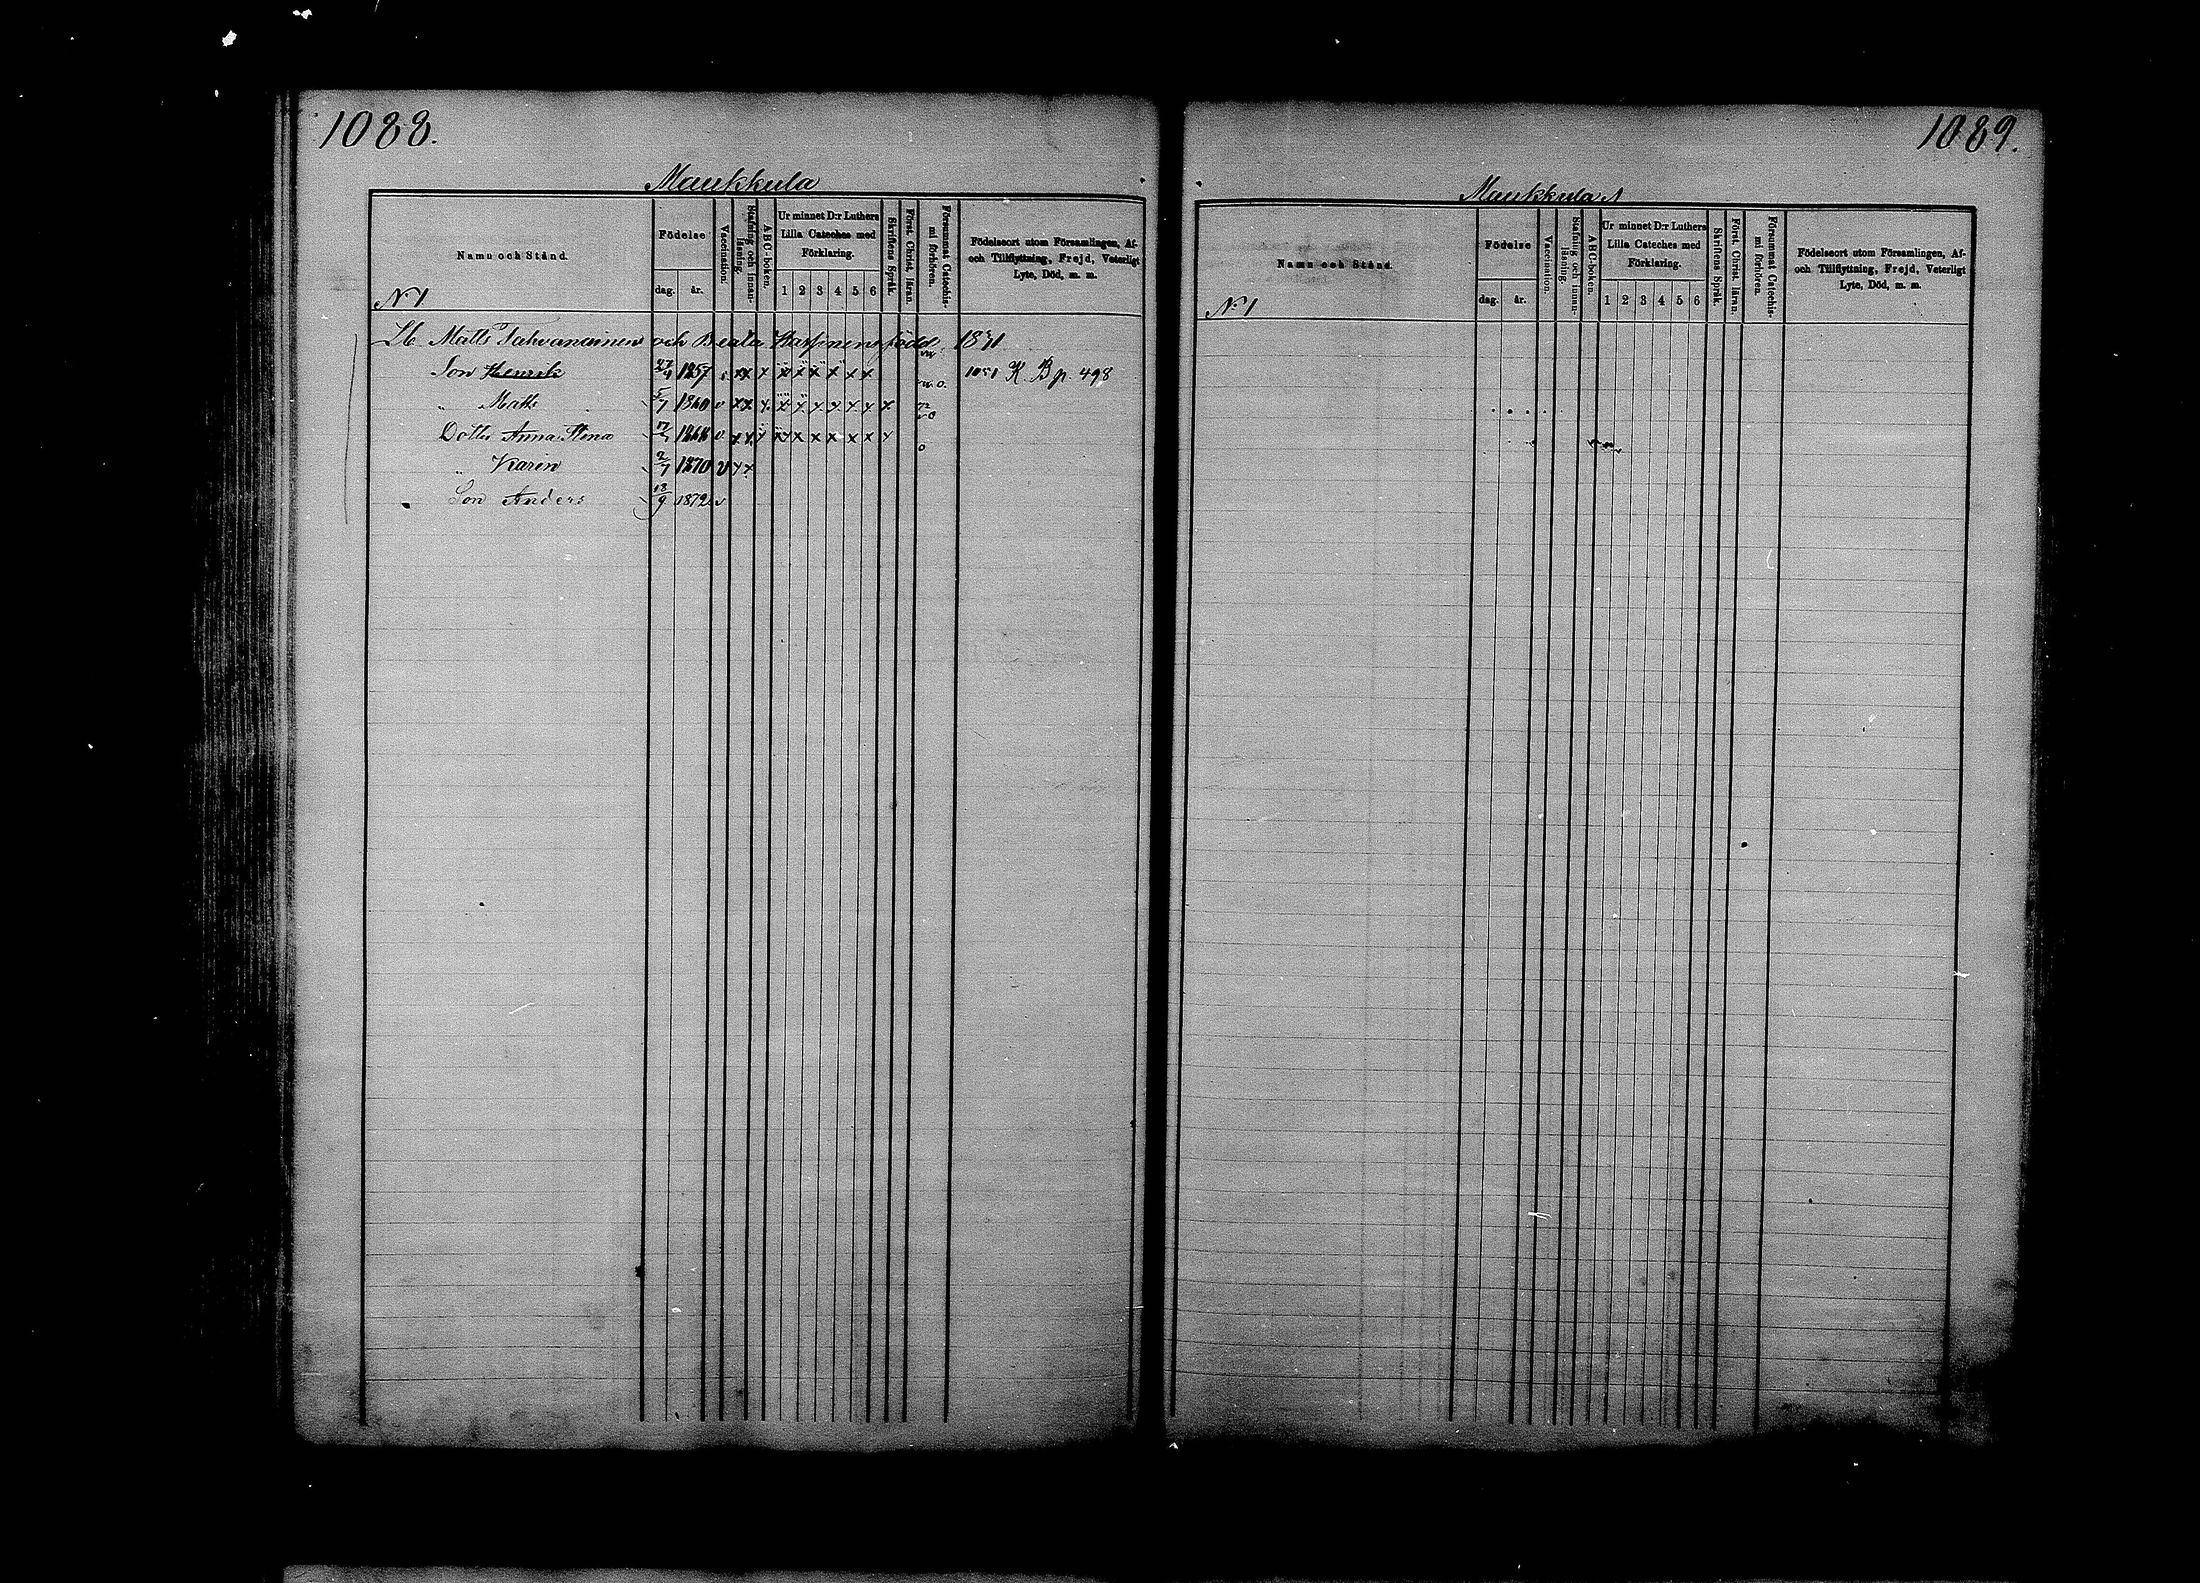 1088.
Maukkula
Namn och Stånd.
Födelse
dag. år.
Vaccination.
Stafning och innanläsning.
ABC-boken.
Ur minnet D:r Luthers
Lilla Cateches med
Förklaring.
1 2 3 4 5 6
Skriftens Språk.
Först. Christ. läran.
Försummat Catechismi förhören.
Födelseort utom Församlingen, Af-
och Tillflyttning, Frejd, Veterligt
Lyte, Död, m. m.
N 1
Matts Tahvanainen och Beata född
Son Henrik 27/4 1857 K. B p. 498
" Matts 5/7 1860 v
Dotter Anna Stena v
" Karin 2/7 1870 v
Son Anders 18/9 1872 v
1089.
Maukkula
Namn och Stånd.
Födelse
dag. år.
Vaccination.
Stafning och innanläsning.
ABC-boken.
Ur minnet D:r Luthers
Lilla Cateches med
Förklaring.
1 2 3 4 5 6
Skriftens Språk.
Först. Christ. läran.
Försummat Catechismi förhören.
Födelseort utom Församlingen, Af-
och Tillflyttning, Frejd, Veterligt
Lyte, Död, m. m.
N:1